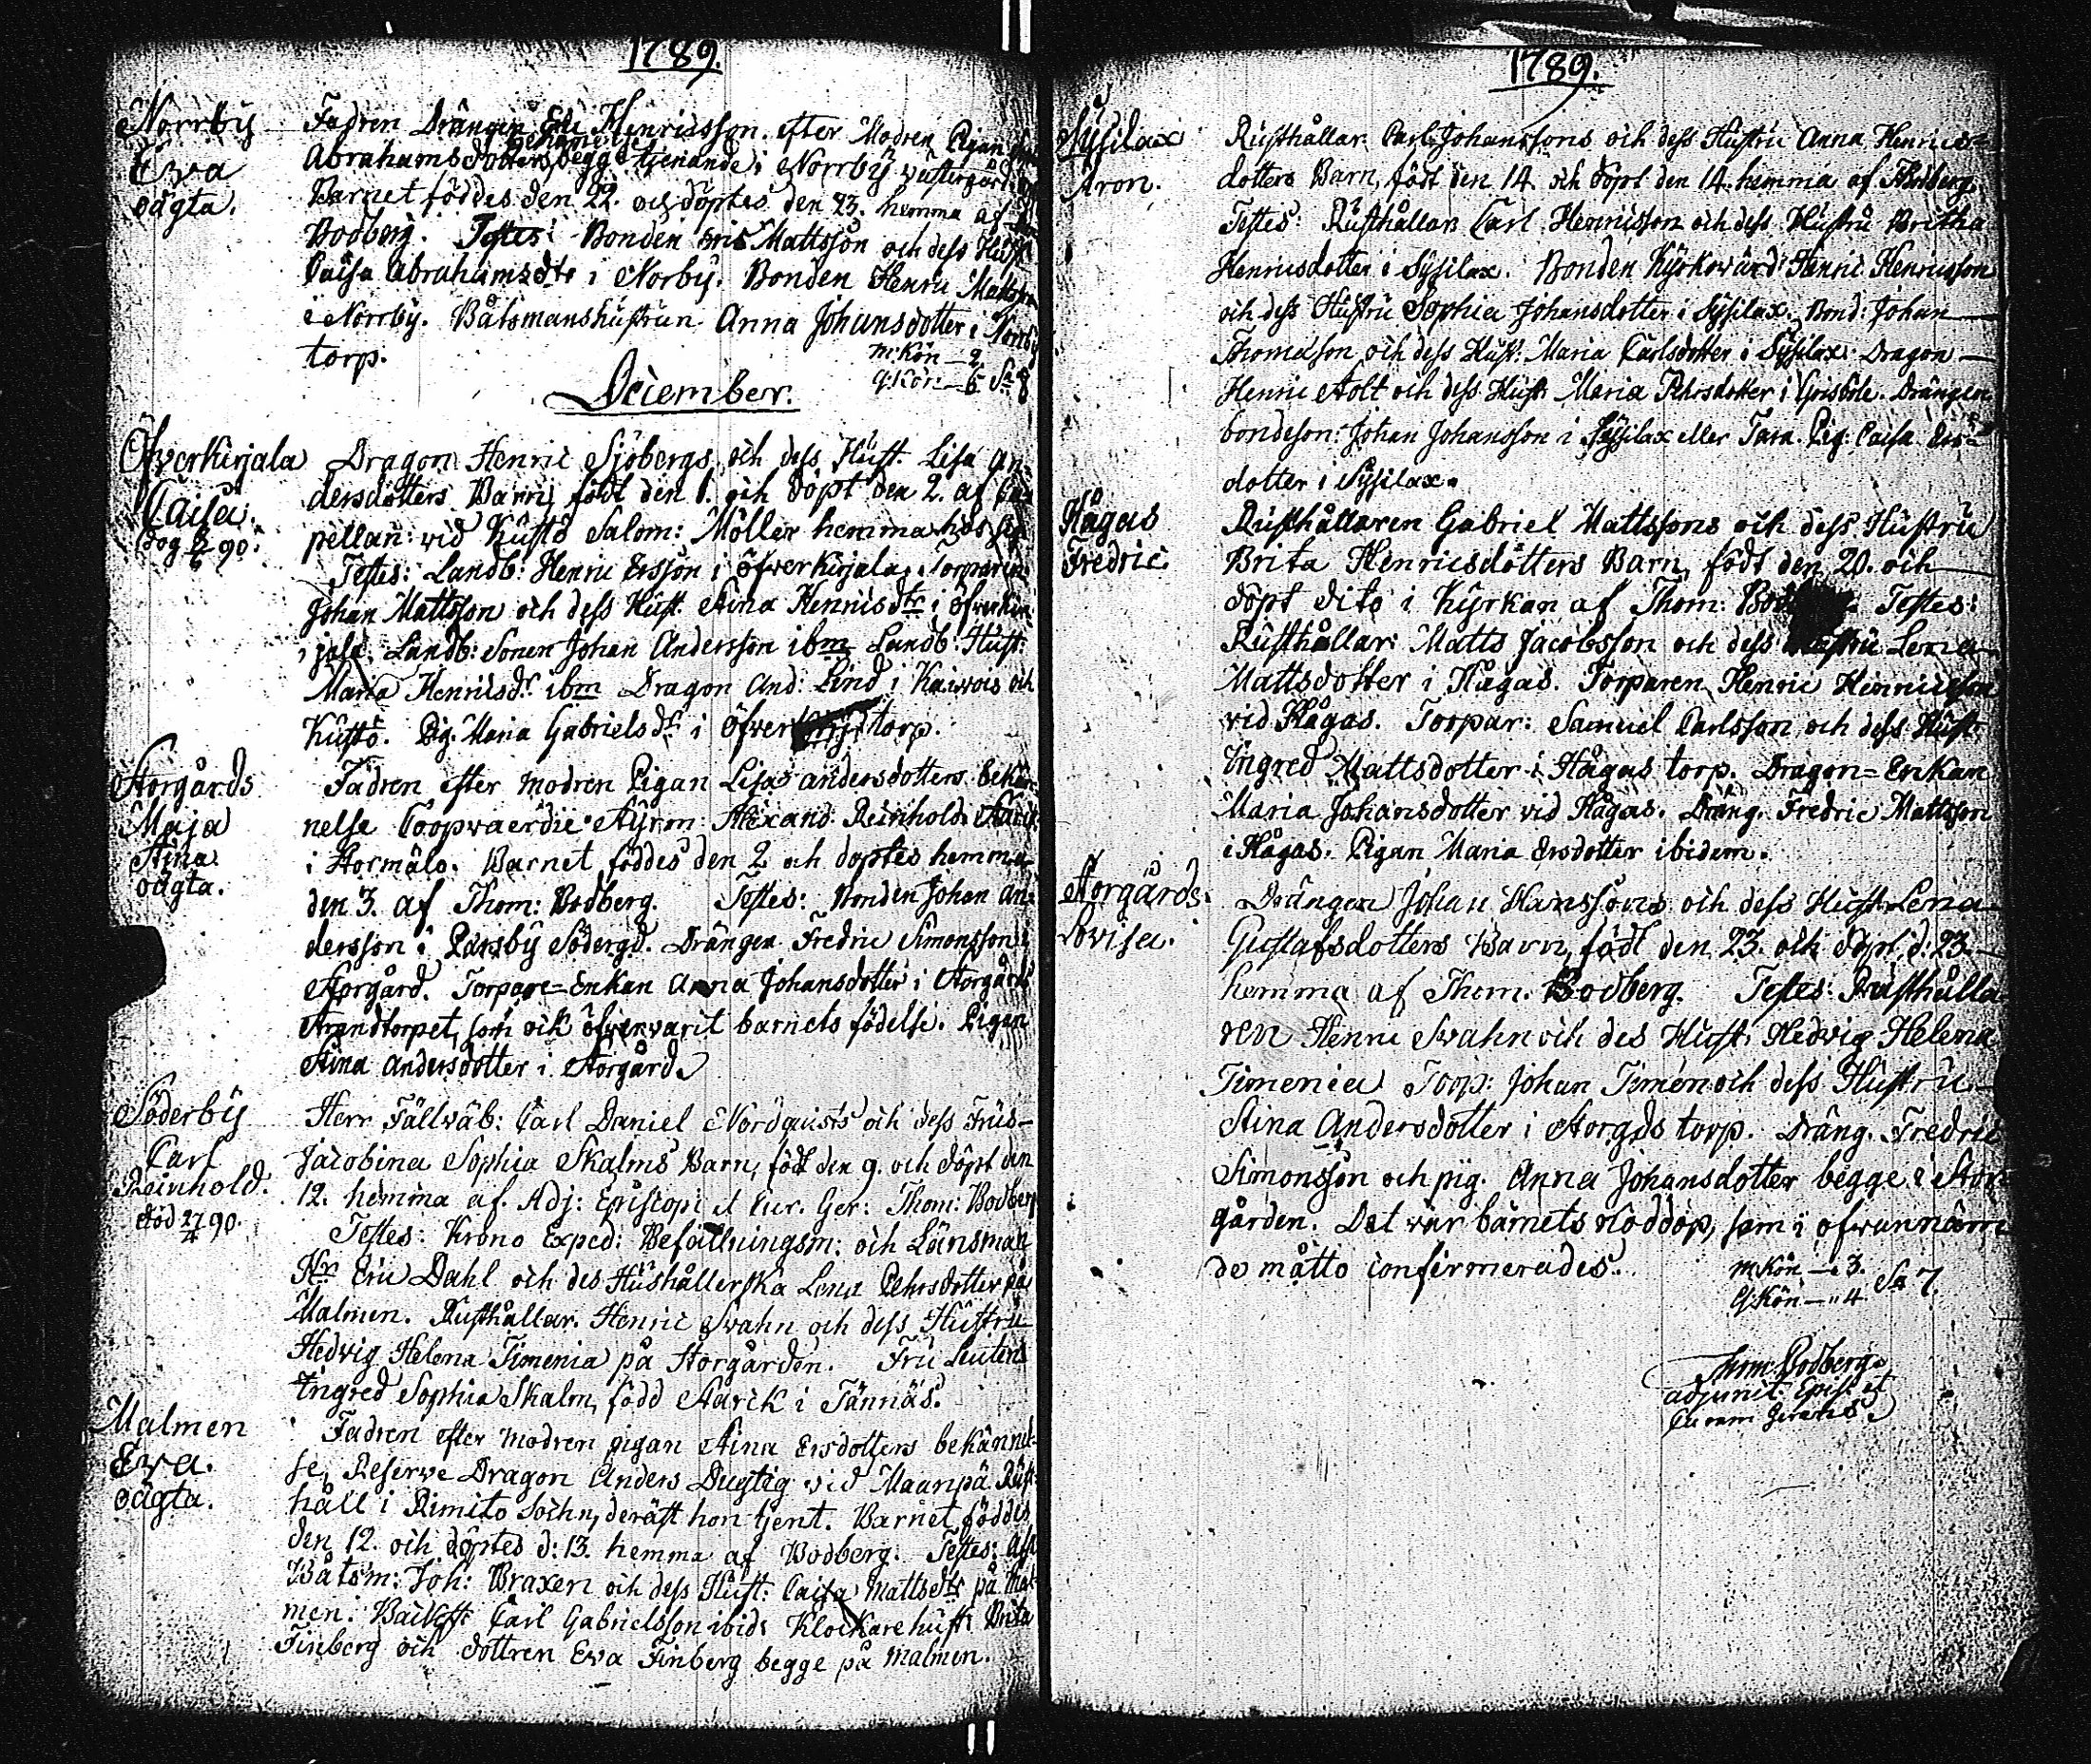 1789.
Norrby
Eva
oägta.
Fadren Drängen Eric Henricsson efter Modren Pigan
bekännelse
Abrahamsdotters begge tjenande i Norrby västergård
Barnet föddes den 22. och döptes den 23. hemma af
Bodberg. Testes: Bonden Eric Mattsson och dess Hust
Caisa Abrahamsdtr i Norby. Bonden Henric Mattsson
i Norrby. Båtsmanshustrun Anna Johansdotter i Norrby
torp.
m:kön — 2
q:kön — 6 Sa 8
December.
Öfverkirjala
Caisa.
dog 90.
Dragon Henric Sjöbergs och dess Hust. Lisa An-
dersdotters Barn, födt den 1. och döpt den 2. af Ca-
pellan vid Kustö Salom: Möller hemma hos sig
Testes: Landb: Henric Ersson i Öfverkirjala. Torparen
Johan Mattsson och dess Hust. Stina Henricsdtr i Öfverkir-
jala. Landb: Sonen Johan Andersson ibm Landb: Hust:
Maria Henricsdr ibm Dragon And: Lind i Kairois och
Kustö. Pig. Maria Gabrielsdr i Öfverkirj: torp.
Storgårds
Maja
Stina
oägta.
Fadren efter modren Pigan Lisas Andersdotters bekän-
nelse Coopvaerdie Styrm: Alexand: Reinhold Starck
i Stormälo. Barnet föddes den 2 och döptes hemma
den 3. af Thom: Bodberg. Testes: Bonden Johan An-
dersson i Pärsby Södergd. Drängen Fredric Simonsson i
Storgård. Torpare-Enkan Anna Johansdotter i Storgårds
Strandtorpet, som ock öfvervarit barnets födelse. Pigan
Stina Andersdotter i Storgård.
Söderby
Carl
Reinhold.
död 27/4 90.
Herr Fältwäb: Carl Daniel Nordquists och dess Frus-
Jacobina Sophia Skalms Barn, födt den 9. och döpt den
12. hemma af Adj: Episcopi et Cur. Ger: Thom: Bodberg
Testes: Krono Exped: Befallningsm: och Länsman
Hr Eric Dahl och des Hushållerska Lena Pehrsdotter på
Malmen. Rusthållar. Henric Svahn och dess Hustru
Hedvig Helena Timenia på Storgården. Fru Leutens
Ingred Sophia Skalm, född Starck i Tännäs.
Malmen
Eva.
oägta.
Fadren efter modren pigan Stina Ersdotters bekännel-
se, Reserve Dragon Anders Dugtig vid Maanpä Rust-
håll i Rimito Sochn, deräst hon tjent. Barnet föddes
den 12. och döptes d: 13. hemma af Bodberg. Testes: Afsk
Båtsm: Joh: Braxen och dess Hust: Caisa Mattsdtr på Mal-
men. Backst: Carl Gabrielsson ibid: Klockarehust: Brita
Finberg och dottren Eva Finberg begge på Malmen.
1789.
Sysilax
Aron.
Rusthållar Carl Johanssons och dess Hustru Anna Henrics-
dotters Barn, födt den 14. och döpt den 14. hemma af Th: Bodberg
Testes: Rusthållar Carl Henricsson och dess Hustru Britha
Henricsdotter i Sysilax. Bonden Kyrkovärd Henric Henricsson
och dess Hustru Sophia Johansdotter i Sysilax. Bond: Johan
Thomasson och dess Hust: Maria Carlsdotter i Sysilax. Dragon
Henric Stolt och dess Hust: Maria Pehrsdotter i Grisböle. Drängen
bondeson: Johan Johansson i Sysilax eller Tara. Pig: Caisa Ers-
dotter i Sysilax.
Hågas
Fredric.
Rusthållaren Gabriel Mattssons och dess Hustru
Brita Henricsdotters Barn, födt den 20. och
döpt dito i Kyrkan af Thom: Testes:
Rusthållar: Matts Jacobsson och dess Hustru Lena
Mattsdotter i Hågas. Torparen Henric Henricsson
vid Hågas. Torpar: Samuel Carlsson och dess Hust
Ingred Mattsdotter i Hågas torp. Dragon-Enkan
Maria Johansdotter vid Hågas. Dräng. Fredric Mattsson
i Hågas. Pigan Maria Ersdotter ibidem.
Storgårds
Lovisa.
Drängen Johan Hanssons och dess Hust: Lena
Gustafsdotters Barn, födt den 23. och döpt d: 23
hemma af Thom. Bodberg. Testes: Rusthålla-
ren Henric Svahn och des Hust: Hedvig Helena
Timenia Torp: Johan Timén och dess Hustru
Stina Andersdotter i Storgds torp. Dräng. Fredric
Simonsson och pig. Anna Johansdotter begge i Stor-
gården. Det var barnets Noddop, som i ofvannämn
de måtto confirmerades.
m:kön — 3.
q:kön — 4 Sa 7.
Thom: Bodberg.
adjunct: Epist et
Curam Gerens.